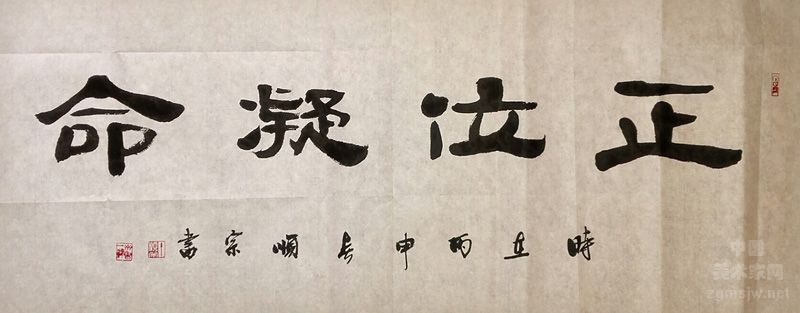 正位凝命
時在丙申春順宗書
中国
美术家网
zgmsjw.net